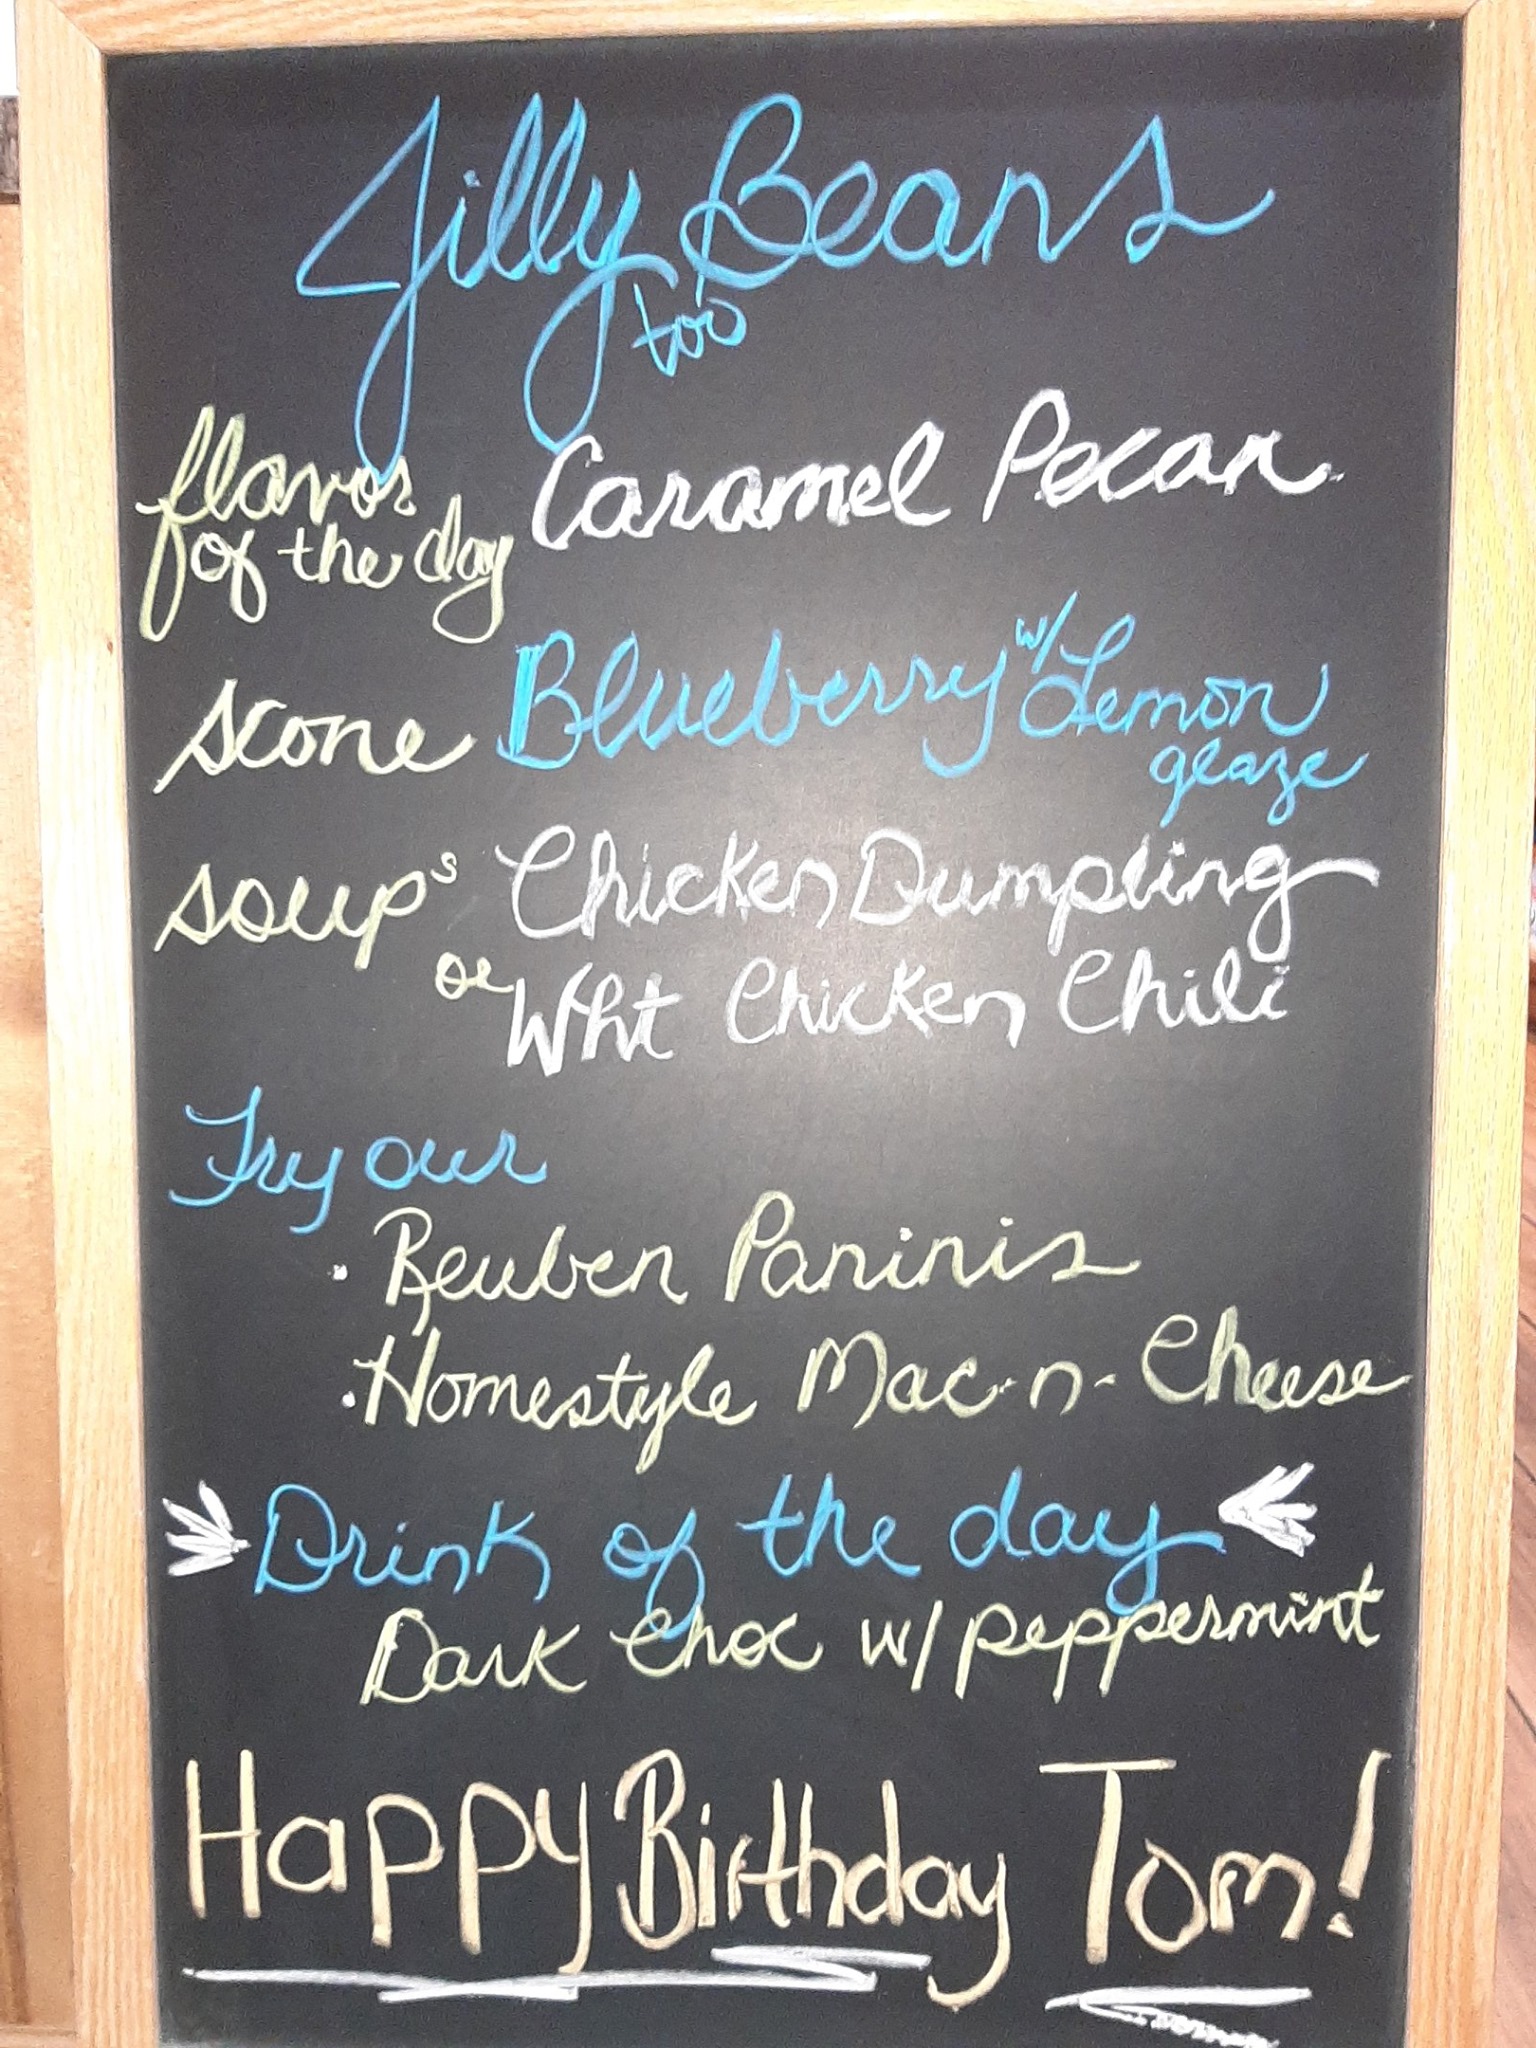 Jilly Beans
too
flavor of the day Caramel Pecan
scone Blueberry w/ Lemon glaze
soups Chicken Dumpling
or Wht Chicken Chili
Try our
· Reuben Paninis
· Homestyle Mac-n-Cheese
Drink of the day
Dark Choc w/ peppermint
Happy Birthday Tom!